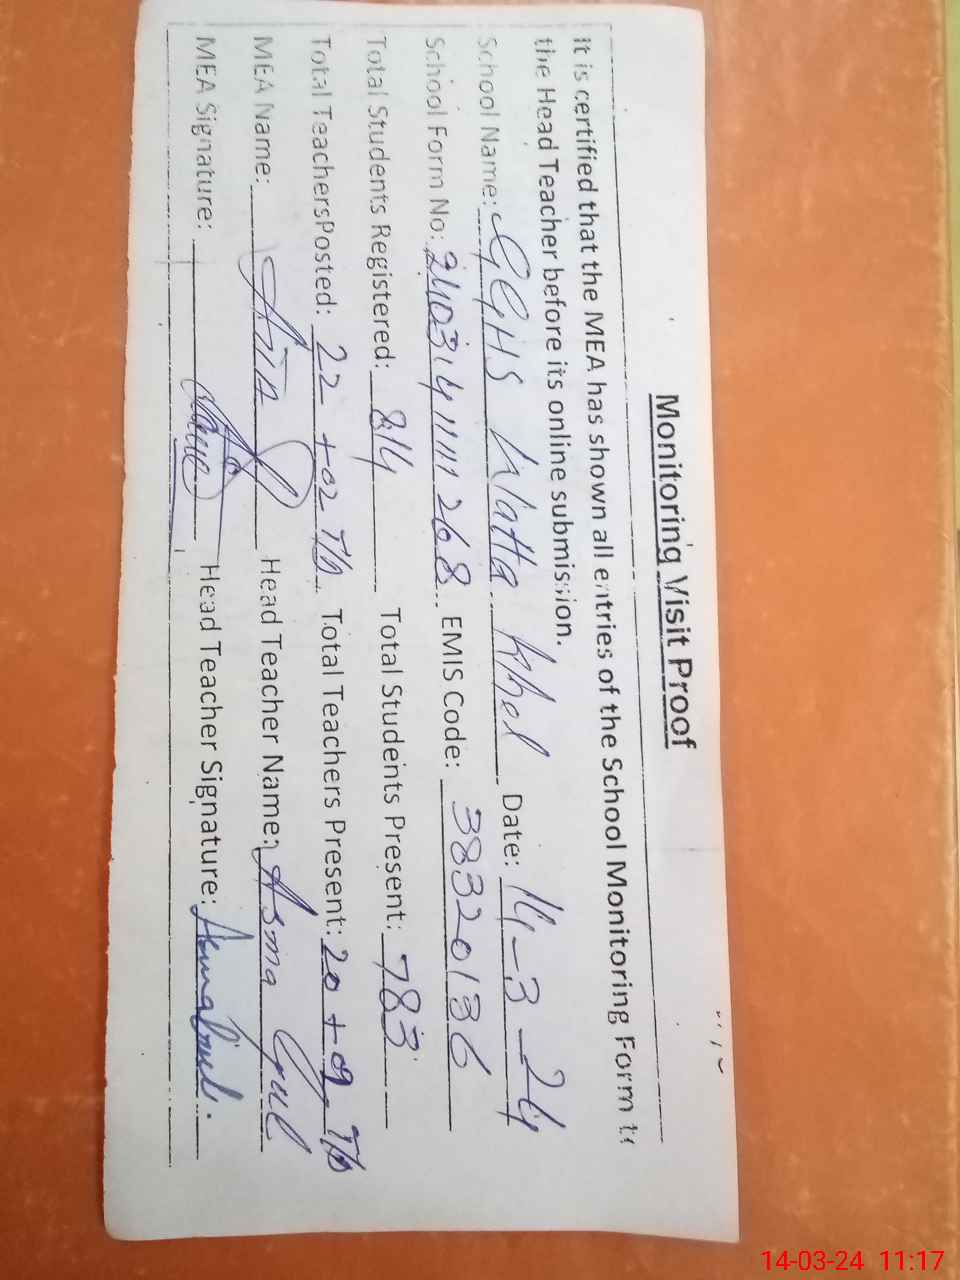 Monitoring Visit Proof
It is certified that the MEA has shown all entries of the School Monitoring Form to
the Head Teacher before its online submission.
School Name: GGHS Watta Khel Date: 14-3-24
School Form No: EMIS Code: 38320136
Total Students Registered: 814 Total Students Present: 783
Total TeachersPosted: 22 + 02 Tb Total Teachers Present: 20 + 02 Tb
MEA Name: Head Teacher Name: Asma Gul
MEA Signature: Head Teacher Signature:
14-03-24 11:17